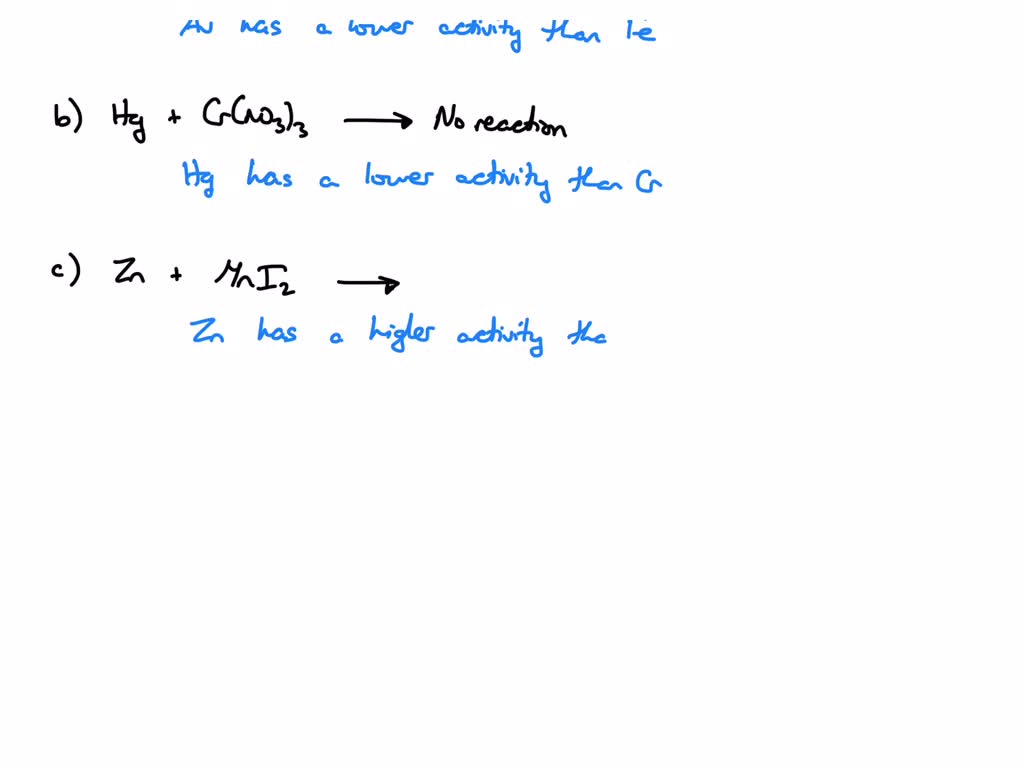 Au has a lower activity than Fe
b) Hg + Cr(NO3)3 → No reaction
Hg has a lower activity than Cr
c) Zn + MnI2 →
Zn has a higher activity tha